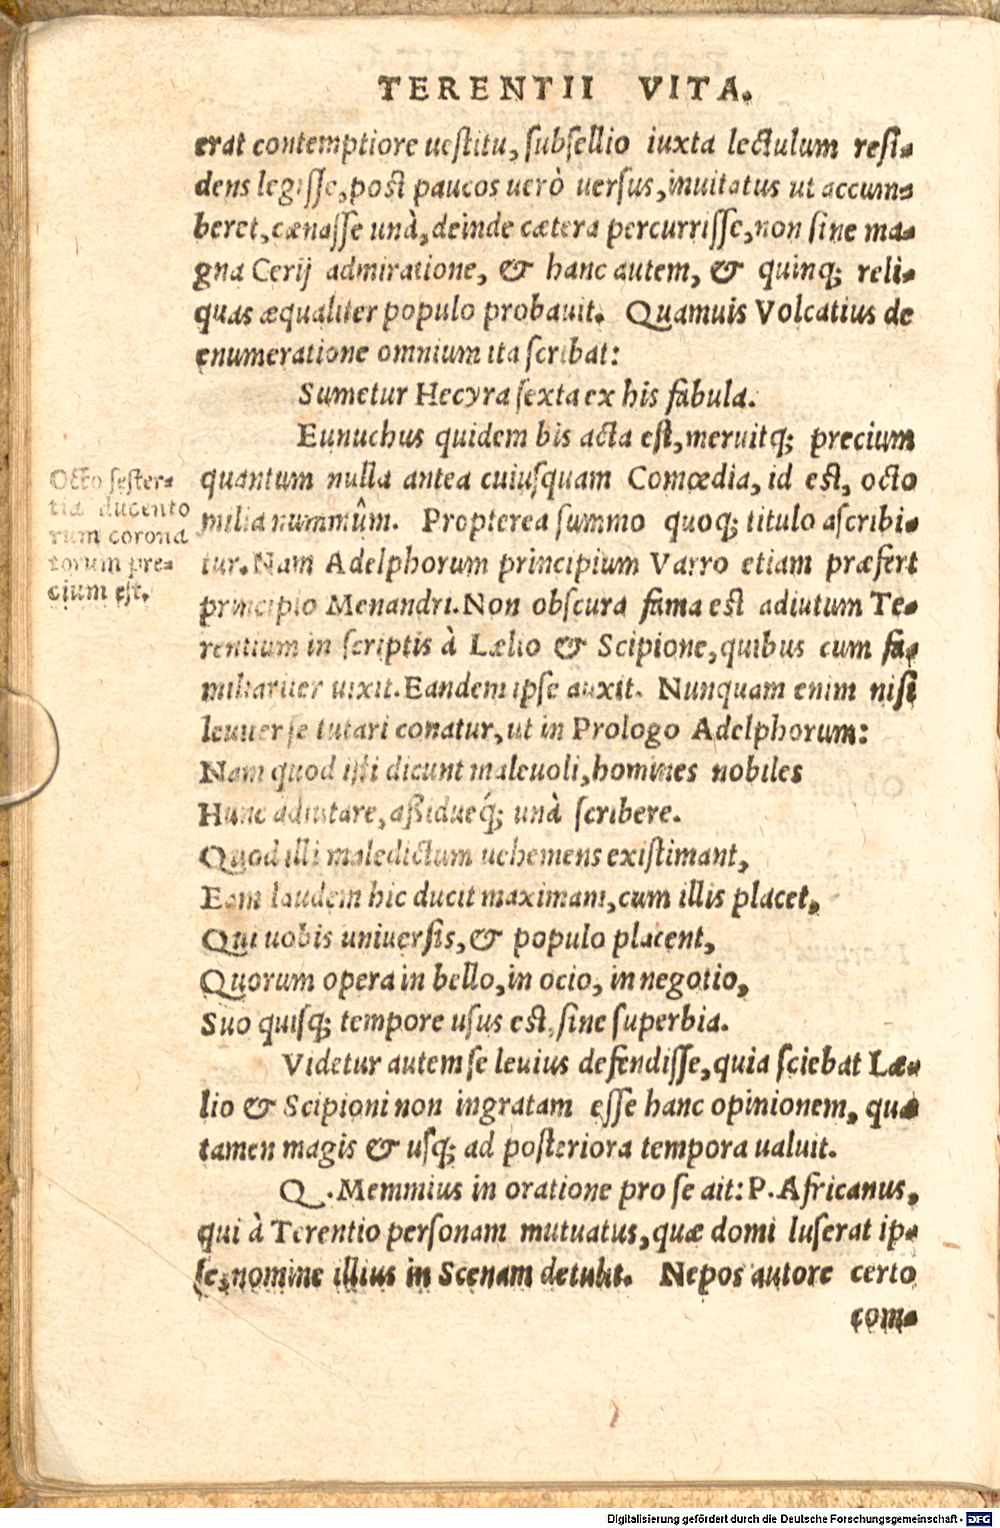 TERENTII VITA.
erat contemptiore uestitu, subsellio iuxta lectulum resi-
dens legisse, post paucos uerò uersus, inuitatus ut accum-
beret, cœnasse unà, deinde cætera percurrisse, non sine ma-
gna Cerij admiratione, & hanc autem, & quinq; reli-
quas æqualiter populo probauit. Quamuis Volcatius de
enumeratione omnium ita scribat:
Sumetur Hecyra sexta ex his fabula.
Eunuchus quidem bis acta est, meruitq; precium
quantum nulla antea cuiusquam Comœdia, id est, octo
milia nummûm. Propterea summo quoq; titulo ascribi-
tur. Nam Adelphorum principium Varro etiam præfert
principio Menandri. Non obscura fama est adiutum Te-
rentium in scriptis à Lælio & Scipione, quibus cum fa-
miliariter uixit. Eandem ipse auxit. Nunquam enim nisi
leuiter se tutari conatur, ut in Prologo Adelphorum:
Nam quod isti dicunt maleuoli, homines nobiles
Hunc adiutare, aßidueq́; unà scribere.
Quod illi maledictum uehemens existimant,
Eam laudem hic ducit maximam, cum illis placet,
Qui uobis uniuersis, & populo placent,
Quorum opera in bello, in ocio, in negotio,
Suo quisq; tempore usus est, sine superbia.
Videtur autem se leuius defendisse, quia sciebat Læ-
lio & Scipioni non ingratam esse hanc opinionem, quæ
tamen magis & usq; ad posteriora tempora ualuit.
Q. Memmius in oratione pro se ait: P. Africanus,
qui à Terentio personam mutuatus, quæ domi luserat ip-
se, nomine illius in Scenam detulit. Nepos autore certo
com-
Octo sester-
tia ducento
rum corona
torum pre-
cium est.
Digitalisierung gefördert durch die Deutsche Forschungsgemeinschaft - DFG